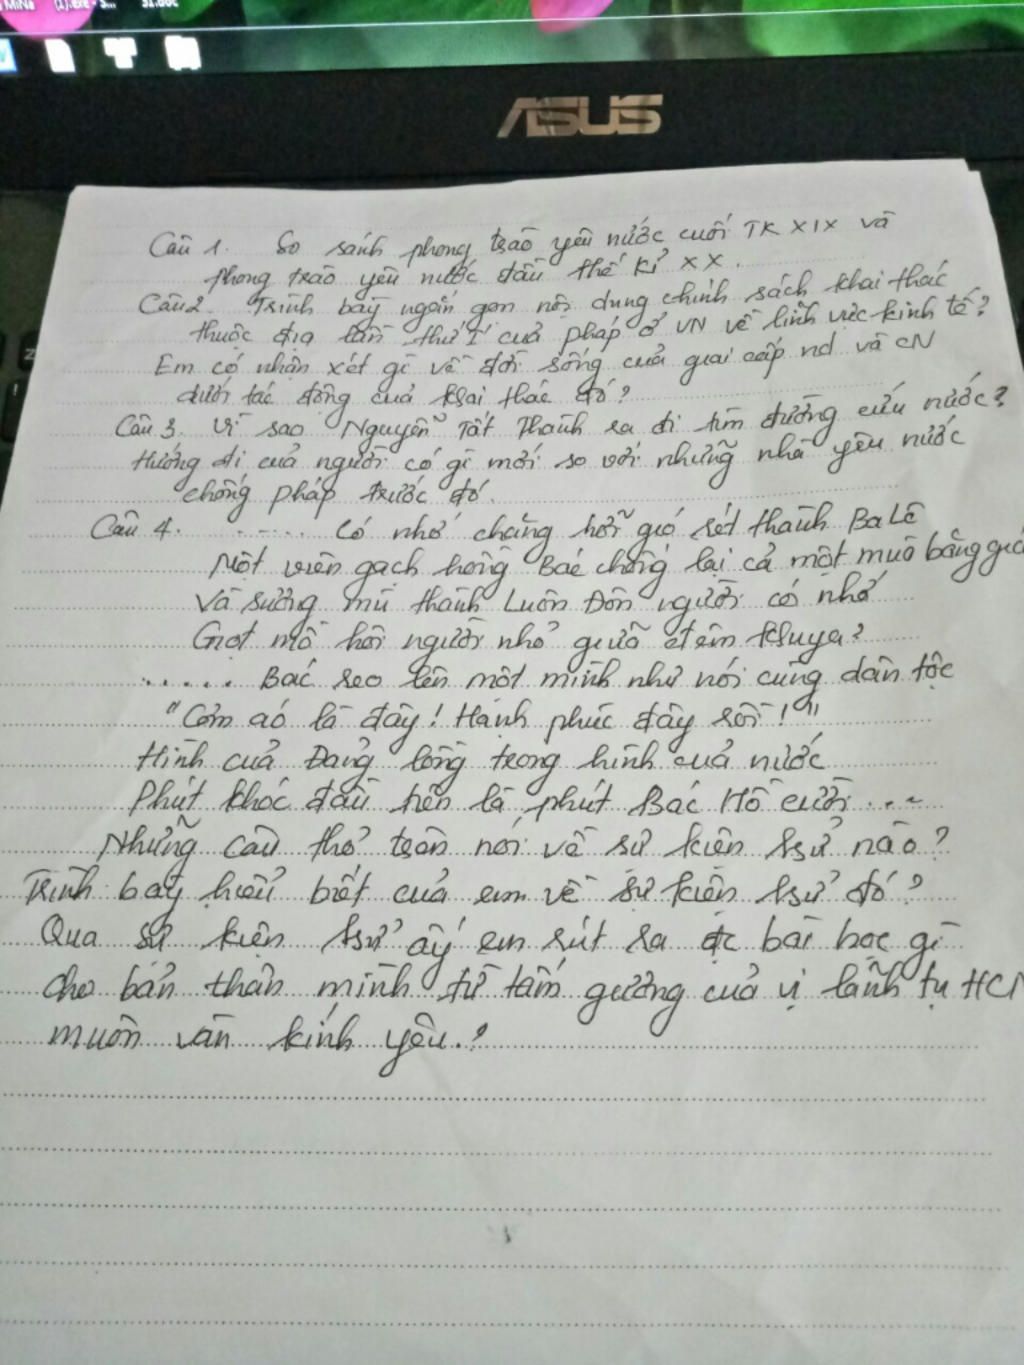 MiNa (1).exe - S... 31.doc
ASUS
Câu 1. So sánh phong trào yêu nước cuối TK XIX và
phong trào yêu nước đầu thế kỉ XX.
Câu 2. Trình bày ngắn gọn nội dung chính sách khai thác
thuộc địa lần thứ I của pháp ở VN về lĩnh vực kinh tế?
Em có nhận xét gì về đời sống của giai cấp nd và CN
dưới tác động của khai thác đó?
Câu 3. Vì sao Nguyễn Tất Thành ra đi tìm đường cứu nước?
Hướng đi của người có gì mới so với những nhà yêu nước
chống pháp trước đó.
Câu 4. ..... Có nhớ chăng hỡi gió rét thành Ba Lê
Một viên gạch hồng Bác chống lại cả một mùa băng giá
Và sương mù thành Luân Đôn người có nhớ
Giọt mồ hôi người nhỏ giữa đêm khuya?
...... Bác reo lên một mình như nói cùng dân tộc
"Cơm áo là đây! Hạnh phúc đây rồi!"
Hình của Đảng lồng trong hình của nước
Phút khóc đầu tiên là phút Bác Hồ cười...
Những câu thơ trên nói về sự kiện lsử nào?
Trình bày hiểu biết của em về sự kiện lsử đó?
Qua sự kiện lsử ấy em rút ra đc bài học gì
cho bản thân mình từ tấm gương của vị lãnh tụ HCM
muôn vàn kính yêu.?